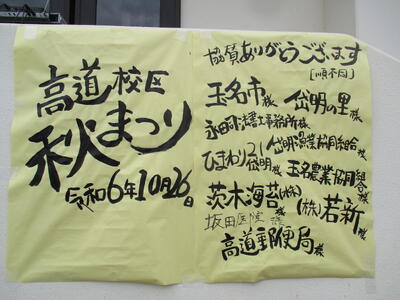 高道校区
秋まつり
令和6年10月26日
協賛ありがとうございます
[順不同]
玉名市様 岱明の里様
永田司法書士事務所様 岱明漁業協同組合様
ひまわり21岱明様 玉名農業協同組合様
茨木海苔(株)様 (株)若新様
坂田医院様
高道郵便局様